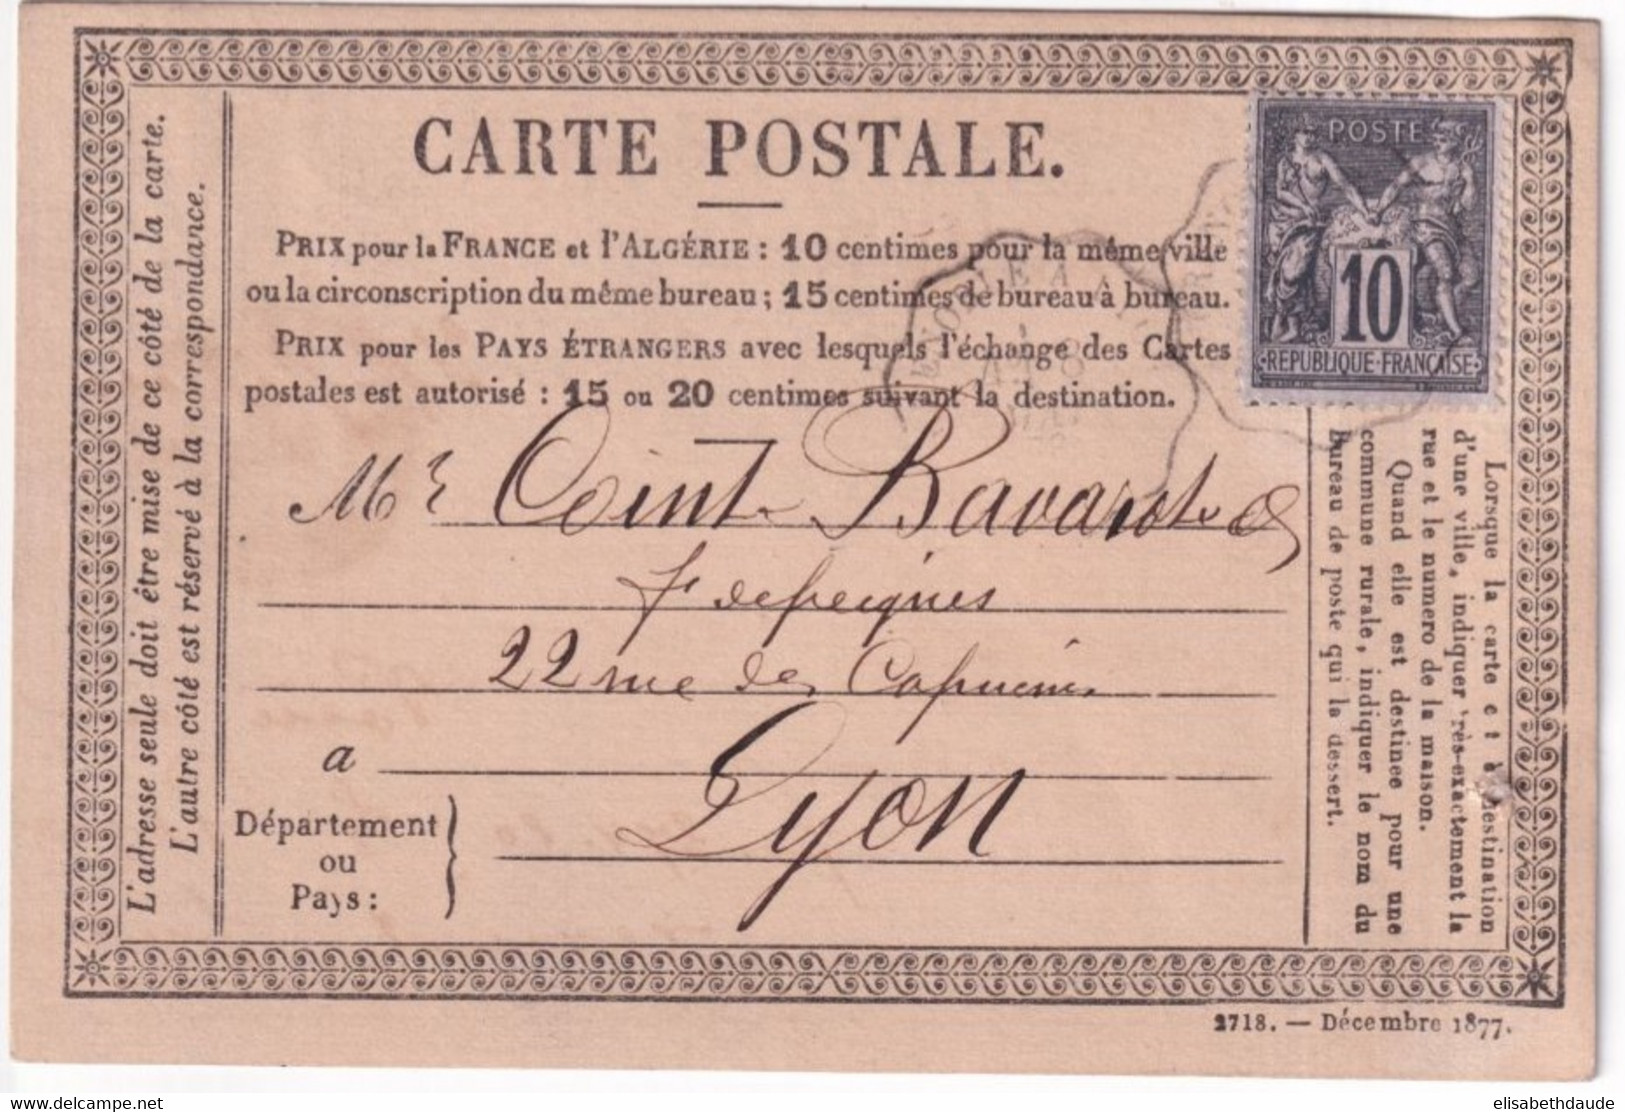 CARTE POSTALE.
PRIX pour la FRANCE et l'ALGÉRIE : 10 centimes pour la même ville
ou la circonscription du même bureau ; 15 centimes de bureau à bureau.
PRIX pour les PAYS ÉTRANGERS avec lesquels l'échange des Cartes
postales est autorisé : 15 ou 20 centimes suivant la destination.
POSTE
10
REPUBLIQUE FRANÇAISE
Mr Coint Bavarot &
fr de peignes
22 rue des Capucins
a Lyon
Département
ou
Pays :
L'adresse seule doit être mise de ce côté de la carte.
L'autre côté est réservé à la correspondance.
Lorsque la carte est à destination
d'une ville, indiquer très-exactement la
rue et le numero de la maison.
Quand elle est destinee pour une
commune rurale, indiquer le nom du
Bureau de poste qui la dessert.
2718. — Décembre 1877.
www.delcampe.net
elisabethdaude